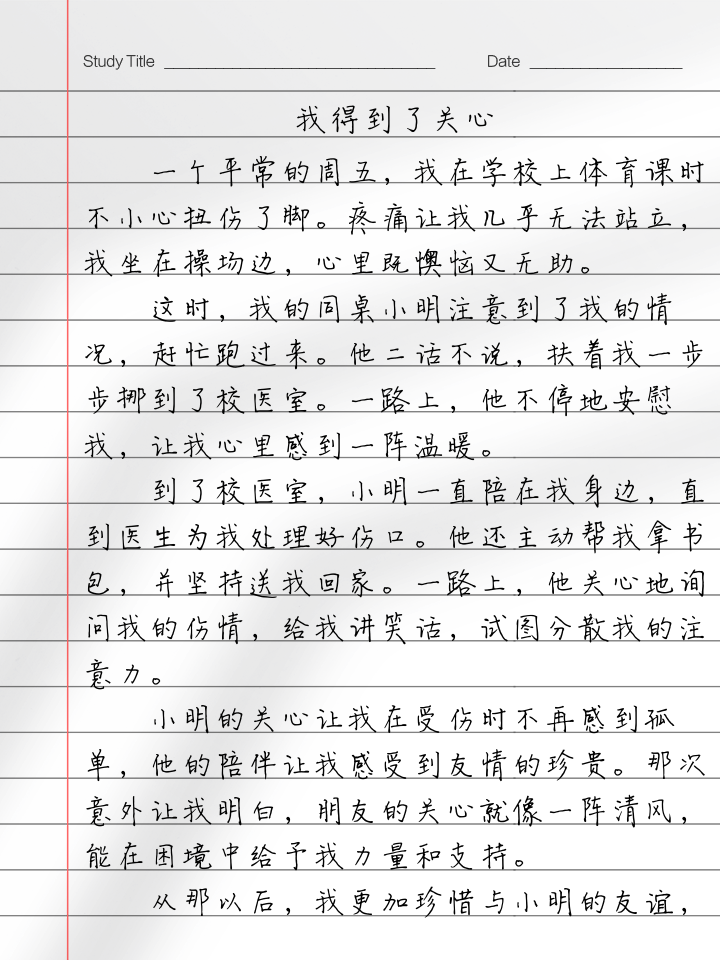 Study Title Date
我得到了关心
一个平常的周五，我在学校上体育课时
不小心扭伤了脚。疼痛让我几乎无法站立，
我坐在操场边，心里既懊恼又无助。
这时，我的同桌小明注意到了我的情
况，赶忙跑过来。他二话不说，扶着我一步
步挪到了校医室。一路上，他不停地安慰
我，让我心里感到一阵温暖。
到了校医室，小明一直陪在我身边，直
到医生为我处理好伤口。他还主动帮我拿书
包，并坚持送我回家。一路上，他关心地询
问我的伤情，给我讲笑话，试图分散我的注
意力。
小明的关心让我在受伤时不再感到孤
单，他的陪伴让我感受到友情的珍贵。那次
意外让我明白，朋友的关心就像一阵清风，
能在困境中给予我力量和支持。
从那以后，我更加珍惜与小明的友谊，